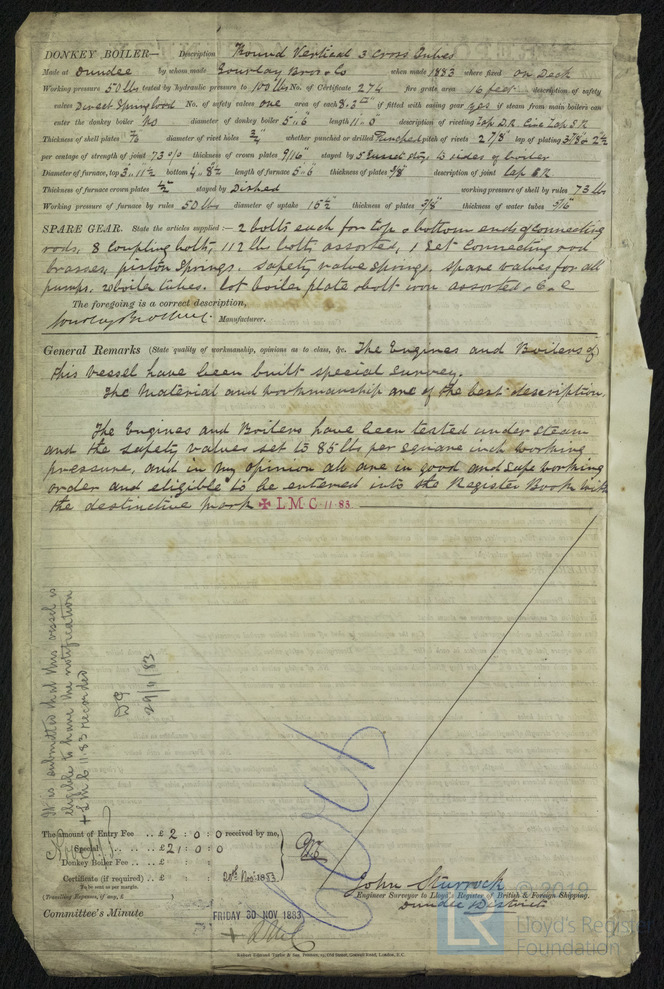 DONKEY BOILER— Description Round Vertical 3 Cross Tubes
Made at Dundee by whom made Gourlay Bros & Co when made 1883 where fixed on Deck
Working pressure 50 lbs tested by hydraulic pressure to 100 lbs No. of Certificate 274 fire grate area 16 feet description of safety
valves Direct Spring load No. of safety valves one area of each 8.3 if fitted with easing gear yes if steam from main boilers can
enter the donkey boiler No diameter of donkey boiler 5..6 length 11..0 description of riveting Lap D.R. Circ Lap S.R
Thickness of shell plates 7/16 diameter of rivet holes 3/4 whether punched or drilled Punched pitch of rivets 2 7/8 lap of plating 3 7/8 & 2 1/2
per centage of strength of joint 73 o/o thickness of crown plates 9/16" stayed by 5 to sides of boiler
Diameter of furnace, top 3..11 1/2 bottom 4..8 1/2 length of furnace 5..6 thickness of plates 3/8 description of joint Lap S.R
Thickness of furnace crown plates 1/2 stayed by Dished working pressure of shell by rules 73 lbs
Working pressure of furnace by rules 50 lbs diameter of uptake 15 1/2 thickness of plates 3/8 thickness of water tubes 5/16
SPARE GEAR. State the articles supplied:— 2 bolts each for top & bottom ends of connecting
rods, 8 coupling bolts, 112 lbs bolts assorted, 1 Set Connecting rod
brasses, piston springs. Safety valve springs. Spare valves for all
pumps. boiler tubes. Lot boiler plate & bolt iron assorted. &c
The foregoing is a correct description,
Gourlay Brothers & Co. Manufacturer.
General Remarks (State quality of workmanship, opinions as to class, &c. The Engines and Boilers of
this vessel have been built special survey.
The Material and workmanship are of the best description.
The Engines and Boilers have been tested under steam
and the safety valves set to 85 lbs per square inch working
pressure, and in my opinion all are in good and safe working
order and eligible to be entered into the Register Book with
the destinctive mark ✠ L M C 11·83.
It is submitted that this vessel is
eligible to have the notification
+ L M C 11.83 recorded
29/11/83
The amount of Entry Fee .. £ 2 : 0 : 0 received by me,
Special .. £ 21 : 0 : 0
Donkey Boiler Fee .. £
Certificate (if required) .. £ 20th Nov. 1883.
To be sent as per margin.
(Travelling Expenses, if any, £ )
John Sturrock
Engineer Surveyor to Lloyd's Register of British & Foreign Shipping.
Dundee District
Committee's Minute
FRIDAY 30 NOV 1883
+ LMC
© 2019
LR
Lloyd's Register
Foundation